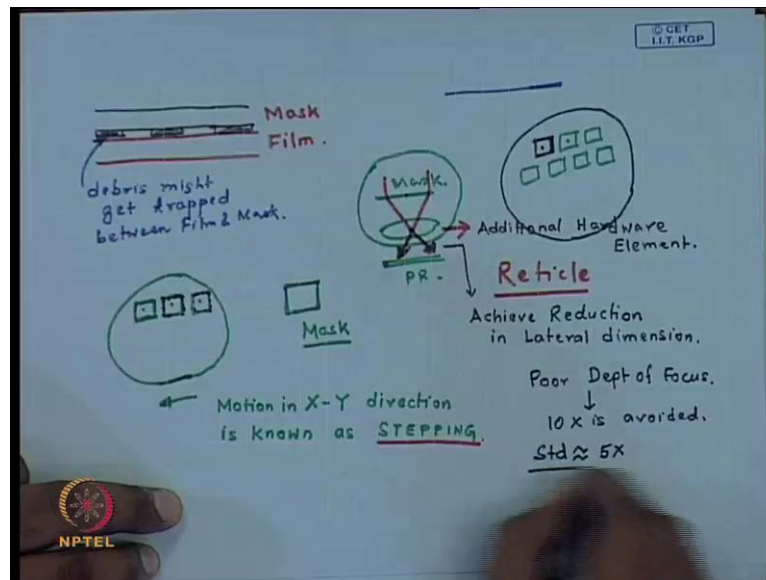 © CET
I.I.T. KGP
Mask
Film.
debris might
get trapped
between Film & Mask.
Mask.
PR.
Additional Hardware
Element.
Reticle
Achieve Reduction
in Lateral dimension.
Mask
Motion in X-Y direction
is known as STEPPING.
Poor Dept of Focus.
10x is avoided.
Std ≈ 5x
NPTEL